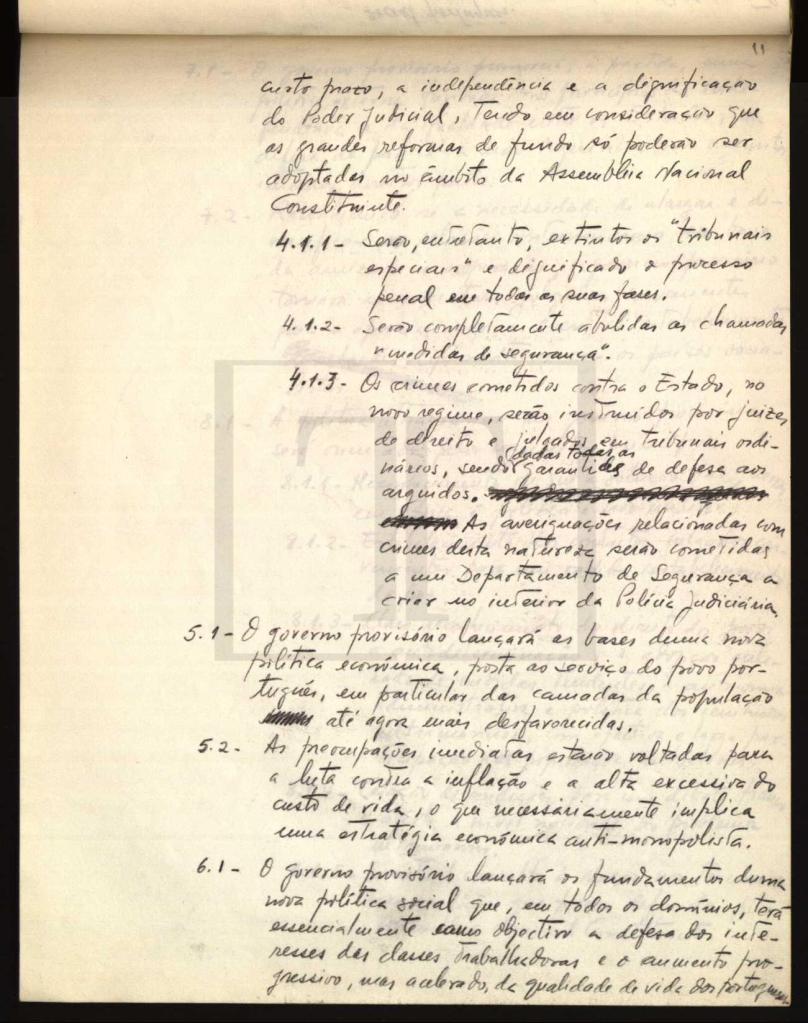 11
curto prazo, a independência e a dignificação
do Poder Judicial, Tendo em consideração que
as grandes reformas de fundo só poderão ser
adoptadas no âmbito da Assembleia Nacional
Constituinte.
4.1.1- Serão, entretanto, extintos os "tribunais
especiais" e dignificado o processo
penal em todas as suas fases.
4.1.2- Serão completamente abolidas as chamadas
"medidas de segurança".
4.1.3- Os crimes cometidos contra o Estado, no
novo regime, serão instruidos por juizes
de direito e julgados em tribunais ordi-
dadas todas as
nários, sendo garantias de defesa aos
arguidos.
As averiguações relacionadas com
crimes desta natureza serão cometidas
a um Departamento de Segurança a
criar no interior da Polícia Judiciária.
5.1- O governo provisório lançará as bases duma nova
política económica, posta ao serviço do povo por-
tuguês, em particular das camadas da população
até agora mais desfavorecidas.
5.2- As preocupações imediatas estarão voltadas para
a luta contra a inflação e a alta excessiva do
custo de vida, o que necessáriamente implica
uma estratégia económica anti-monopolista.
6.1- O governo provisório lançará os fundamentos duma
nova política social que, em todos os domínios, terá
essencialmente como objectivo a defesa dos inte-
resses das classes Trabalhadoras e o aumento pro-
gressivo, mas acelerado, da qualidade de vida dos portugueses